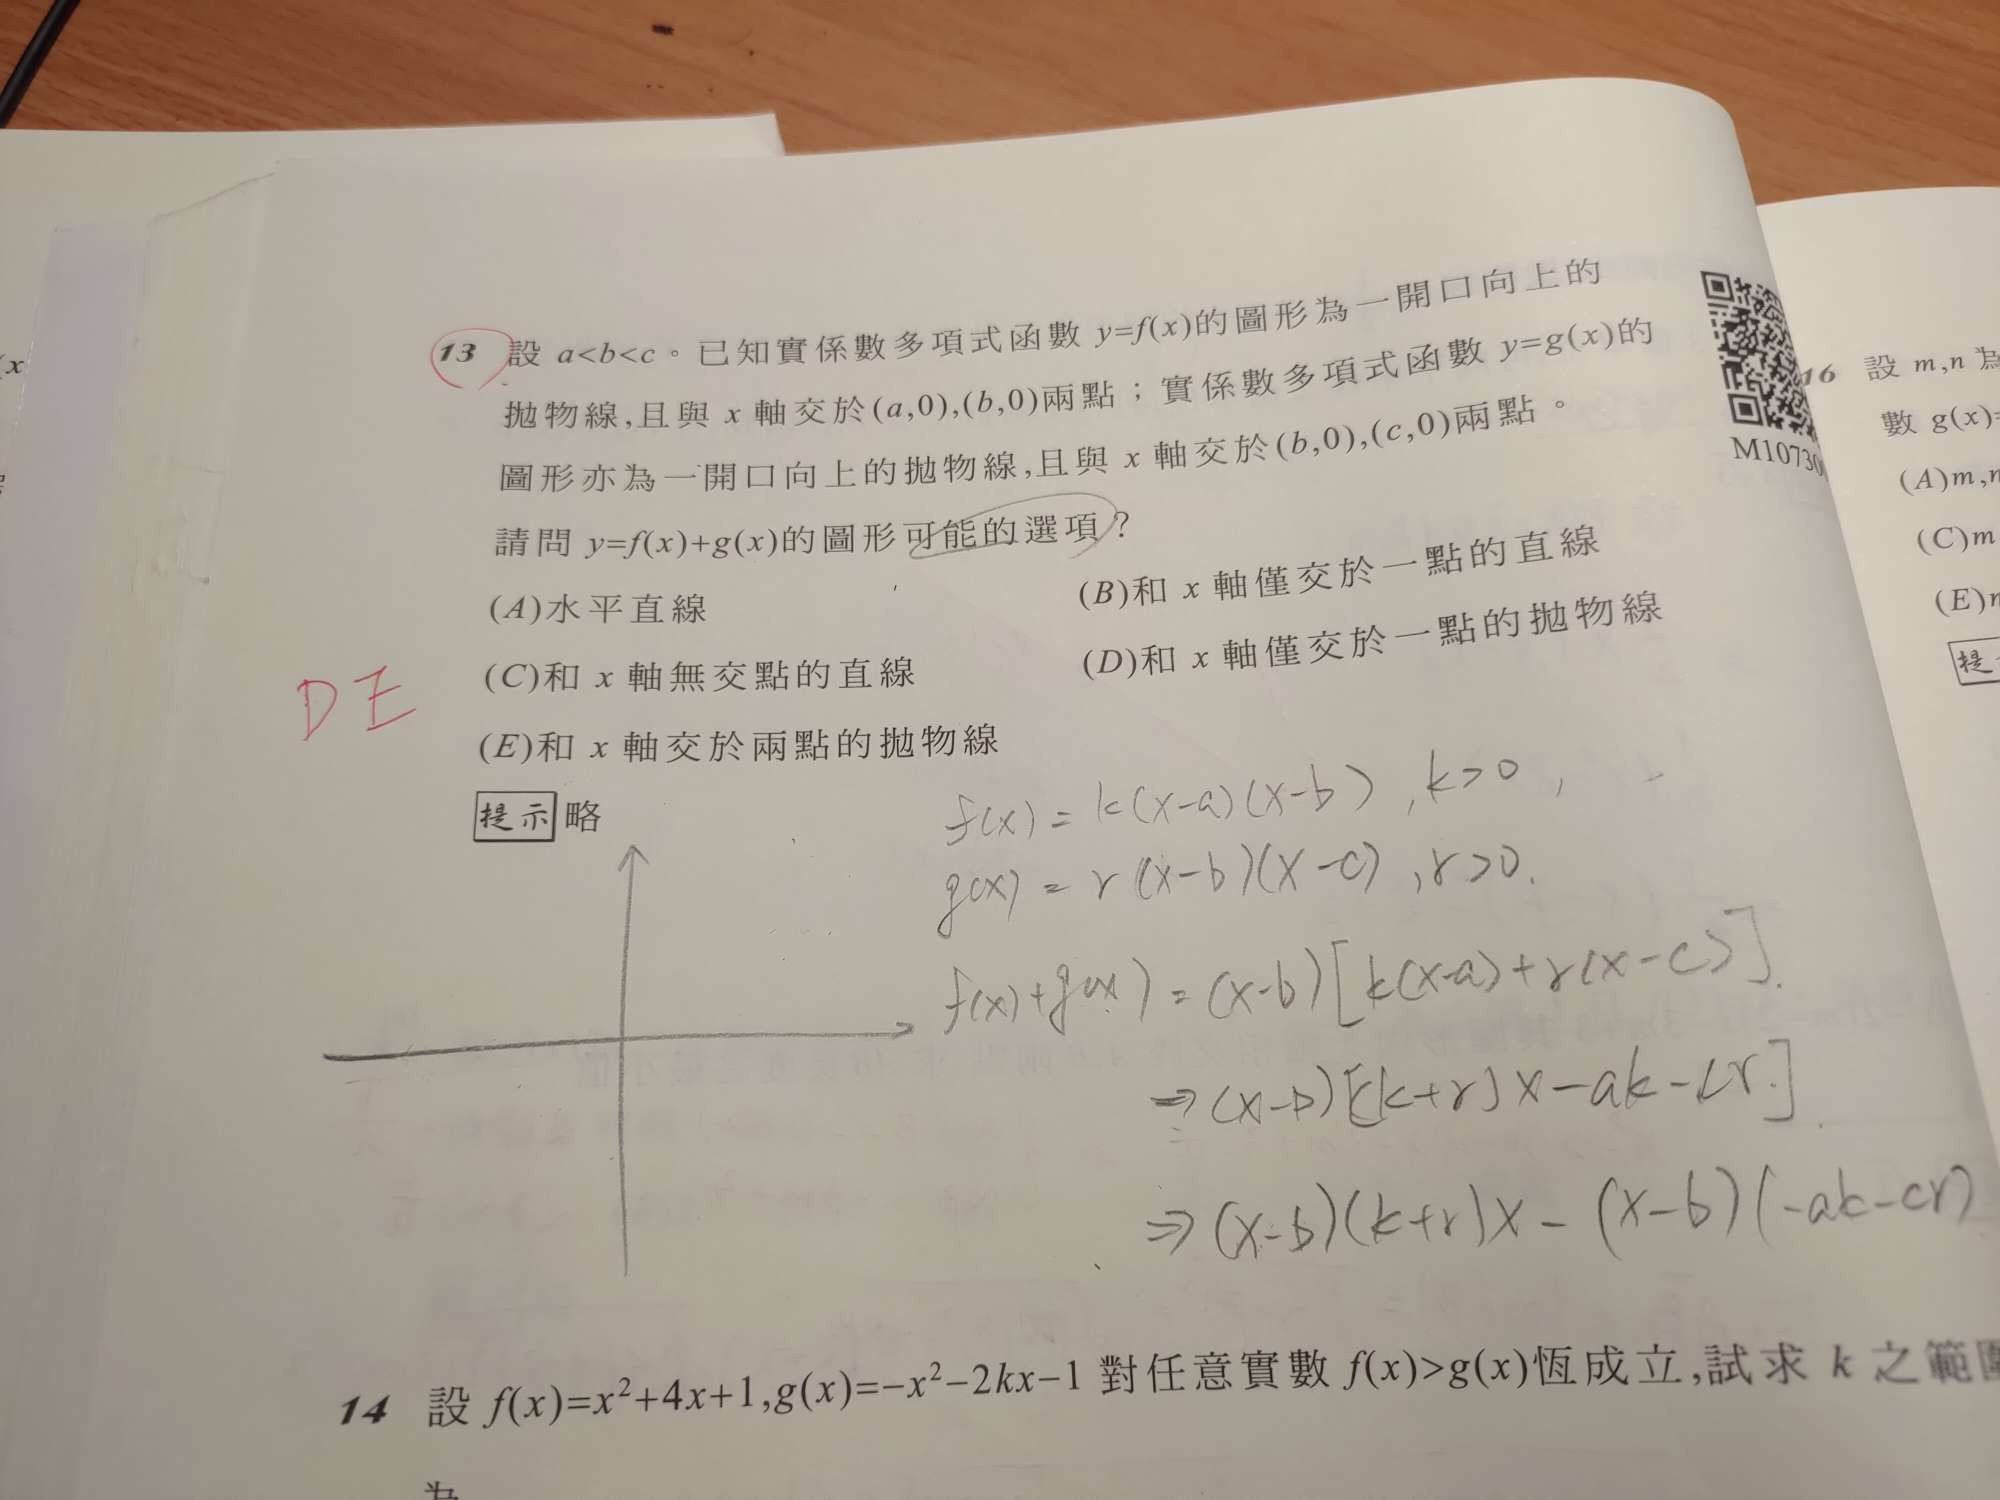 13 設 a<b<c。已知實係數多項式函數 y=f(x)的圖形為一開口向上的
拋物線,且與 x 軸交於(a,0),(b,0)兩點；實係數多項式函數 y=g(x)的
圖形亦為一開口向上的拋物線,且與 x 軸交於(b,0),(c,0)兩點。
請問 y=f(x)+g(x)的圖形可能的選項?
(A)水平直線
(B)和 x 軸僅交於一點的直線
(C)和 x 軸無交點的直線
(D)和 x 軸僅交於一點的拋物線
(E)和 x 軸交於兩點的拋物線
DE
提示 略
f(x) = k(x-a)(x-b), k>0,
g(x) = r(x-b)(x-c), r>0.
f(x)+g(x) = (x-b)[k(x-a)+r(x-c)].
⇒(x-b)[(k+r)x-ak-cr.]
⇒(x-b)(k+r)x-(x-b)(-ak-cr)
14 設 f(x)=x²+4x+1,g(x)=-x²-2kx-1 對任意實數 f(x)>g(x)恆成立,試求 k 之範圍
為
M10730
16 設 m,n 為
數 g(x)=
(A)m,n
(C)m
(E)n